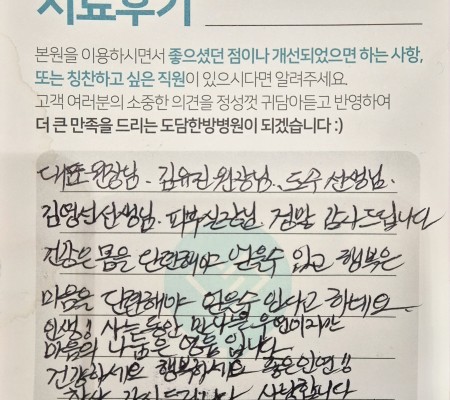 치료후기
본원을 이용하시면서 좋으셨던 점이나 개선되었으면 하는 사항,
또는 칭찬하고 싶은 직원이 있으시다면 알려주세요.
고객 여러분의 소중한 의견을 정성껏 귀담아듣고 반영하여
더 큰 만족을 드리는 도담한방병원이 되겠습니다 :)
대표원장님. 김유진원장님. 도수선생님.
김영선선생님. 피부실장님. 정말 감사드립니다
건강은 몸을 단련해야 얻을수 있고 행복은
마음을 단련해야 얻을수 있다고 하네요
인생!! 사는동안 만남은 우연이지만
마음의 나눔은 영원입니다
건강하세요 행복하세요 좋은인연!!
항상 감사드립니다 사랑합니다